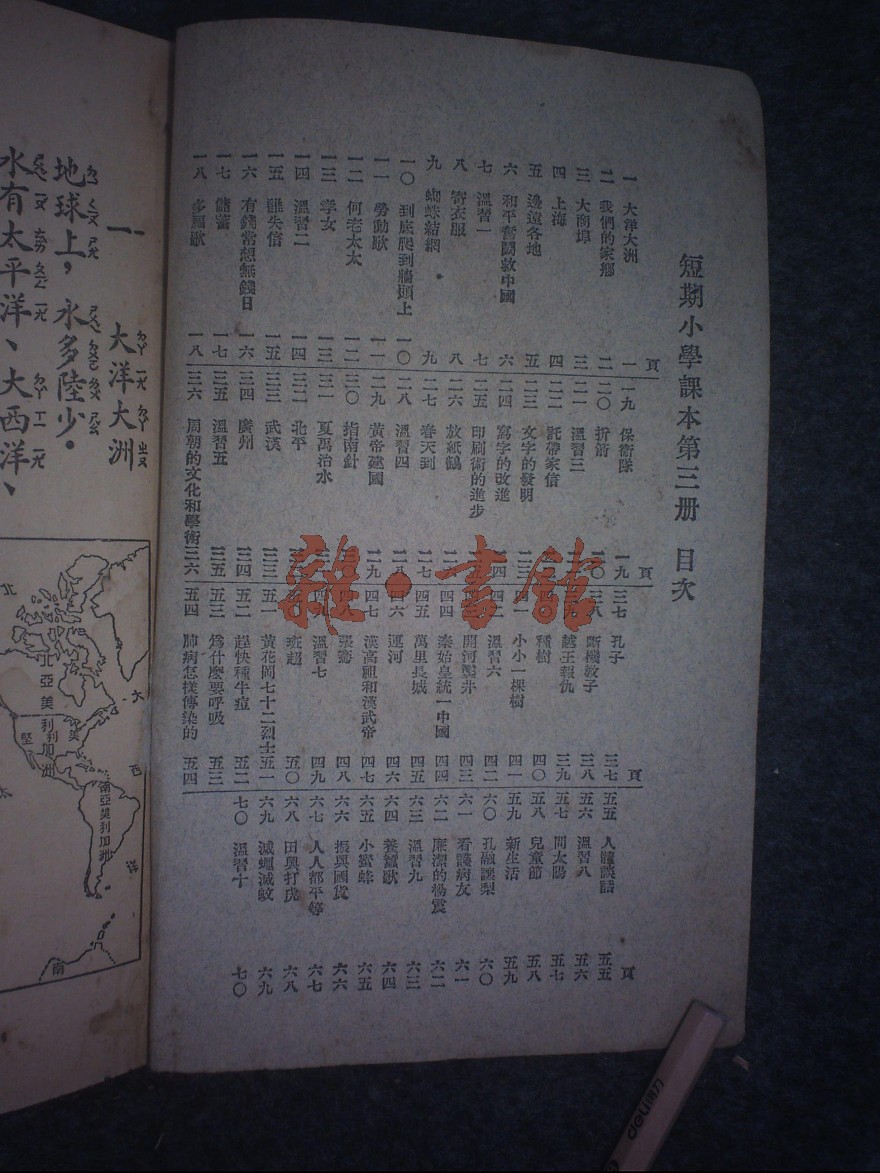 短期小學課本第三册 目次
頁
一 大洋大洲 一
二 我們的家鄉 二
三 大商埠 三
四 上海 四
五 邊遠各地 五
六 和平奮鬪救中國 六
七 溫習一 七
八 寄衣服 八
九 蜘蛛結網 九
一〇 到底爬到牆頭上 一〇
一一 勞動歌 一一
一二 何老太太 一二
一三 孝女 一三
一四 溫習二 一四
一五 失信 一五
一六 有錢常想無錢日 一六
一七 儲蓄 一七
一八 多福歌 一八
頁
一九 保衛隊 一九
二〇 折箭 二〇
二一 溫習三
二二 託帶家信
二三 文字的發明 二三
二四 寫字的改進 二四
二五 印刷術的進步
二六 放紙鷂 二六
二七 春天到 二七
二八 溫習四 二八
二九 黃帝建國 二九
三〇 指南針
三一 夏禹治水
三二 北平
三三 武漢 三三
三四 廣州 三四
三五 溫習五 三五
三六 周朝的文化和學術 三六
頁
三七 孔子 三七
三八 斷機教子 三八
越王報仇 三九
種樹 四〇
四一 小小一棵樹 四一
四二 溫習六 四二
開河鑿井 四三
四四 秦始皇統一中國 四四
四五 萬里長城 四五
四六 運河 四六
四七 漢高祖和漢武帝 四七
張騫 四八
溫習七 四九
班超 五〇
五一 黃花岡七十二烈士 五一
五二 趕快種牛痘 五二
五三 爲什麼要呼吸 五三
五四 肺病怎樣傳染的 五四
頁
五五 人體談話 五五
五六 溫習八 五六
五七 問太陽 五七
五八 兒童節 五八
五九 新生活 五九
六〇 孔融讓梨 六〇
六一 看護病友 六一
六二 廉潔的楊震 六二
六三 溫習九 六三
六四 養蠶歌 六四
六五 小蜜蜂 六五
六六 振興國貨 六六
六七 人人都平等 六七
六八 田興打虎 六八
六九 滅蠅滅蚊 六九
七〇 溫習十 七〇
雜·書館
一 大洋大洲
ㄉㄚ ㄧㄤ ㄉㄚ ㄓㄡ
地球上，水多陸少．
水有太平洋、大西洋、
北
北亞美利加洲
美利堅
大西洋
南亞美利加洲
太
南
deli得力